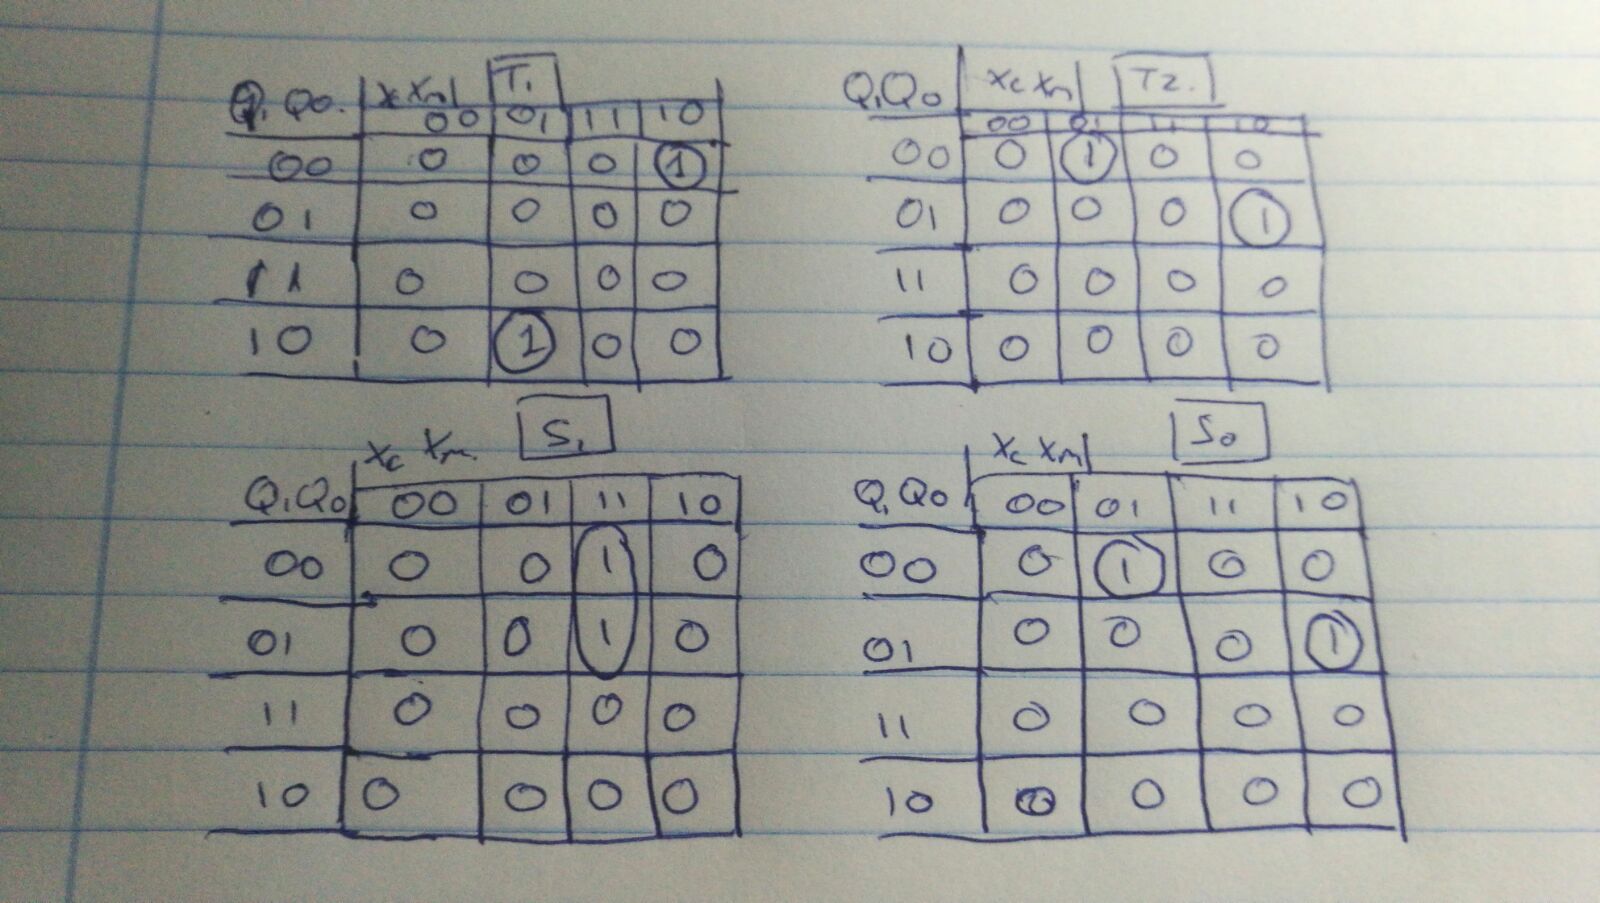 Q₁Q₀. Xc Xm T₁
00 01 11 10
00 0 0 0 1
01 0 0 0 0
11 0 0 0 0
10 0 1 0 0
Q₁Q₀ Xc Xm T2.
00 01 11 10
00 0 1 0 0
01 0 0 0 1
11 0 0 0 0
10 0 0 0 0
Xc Xm. S₁
Q₁Q₀ 00 01 11 10
00 0 0 1 0
01 0 0 1 0
11 0 0 0 0
10 0 0 0 0
Xc Xm S₀
Q₁Q₀ 00 01 11 10
00 0 1 0 0
01 0 0 0 1
11 0 0 0 0
10 0 0 0 0